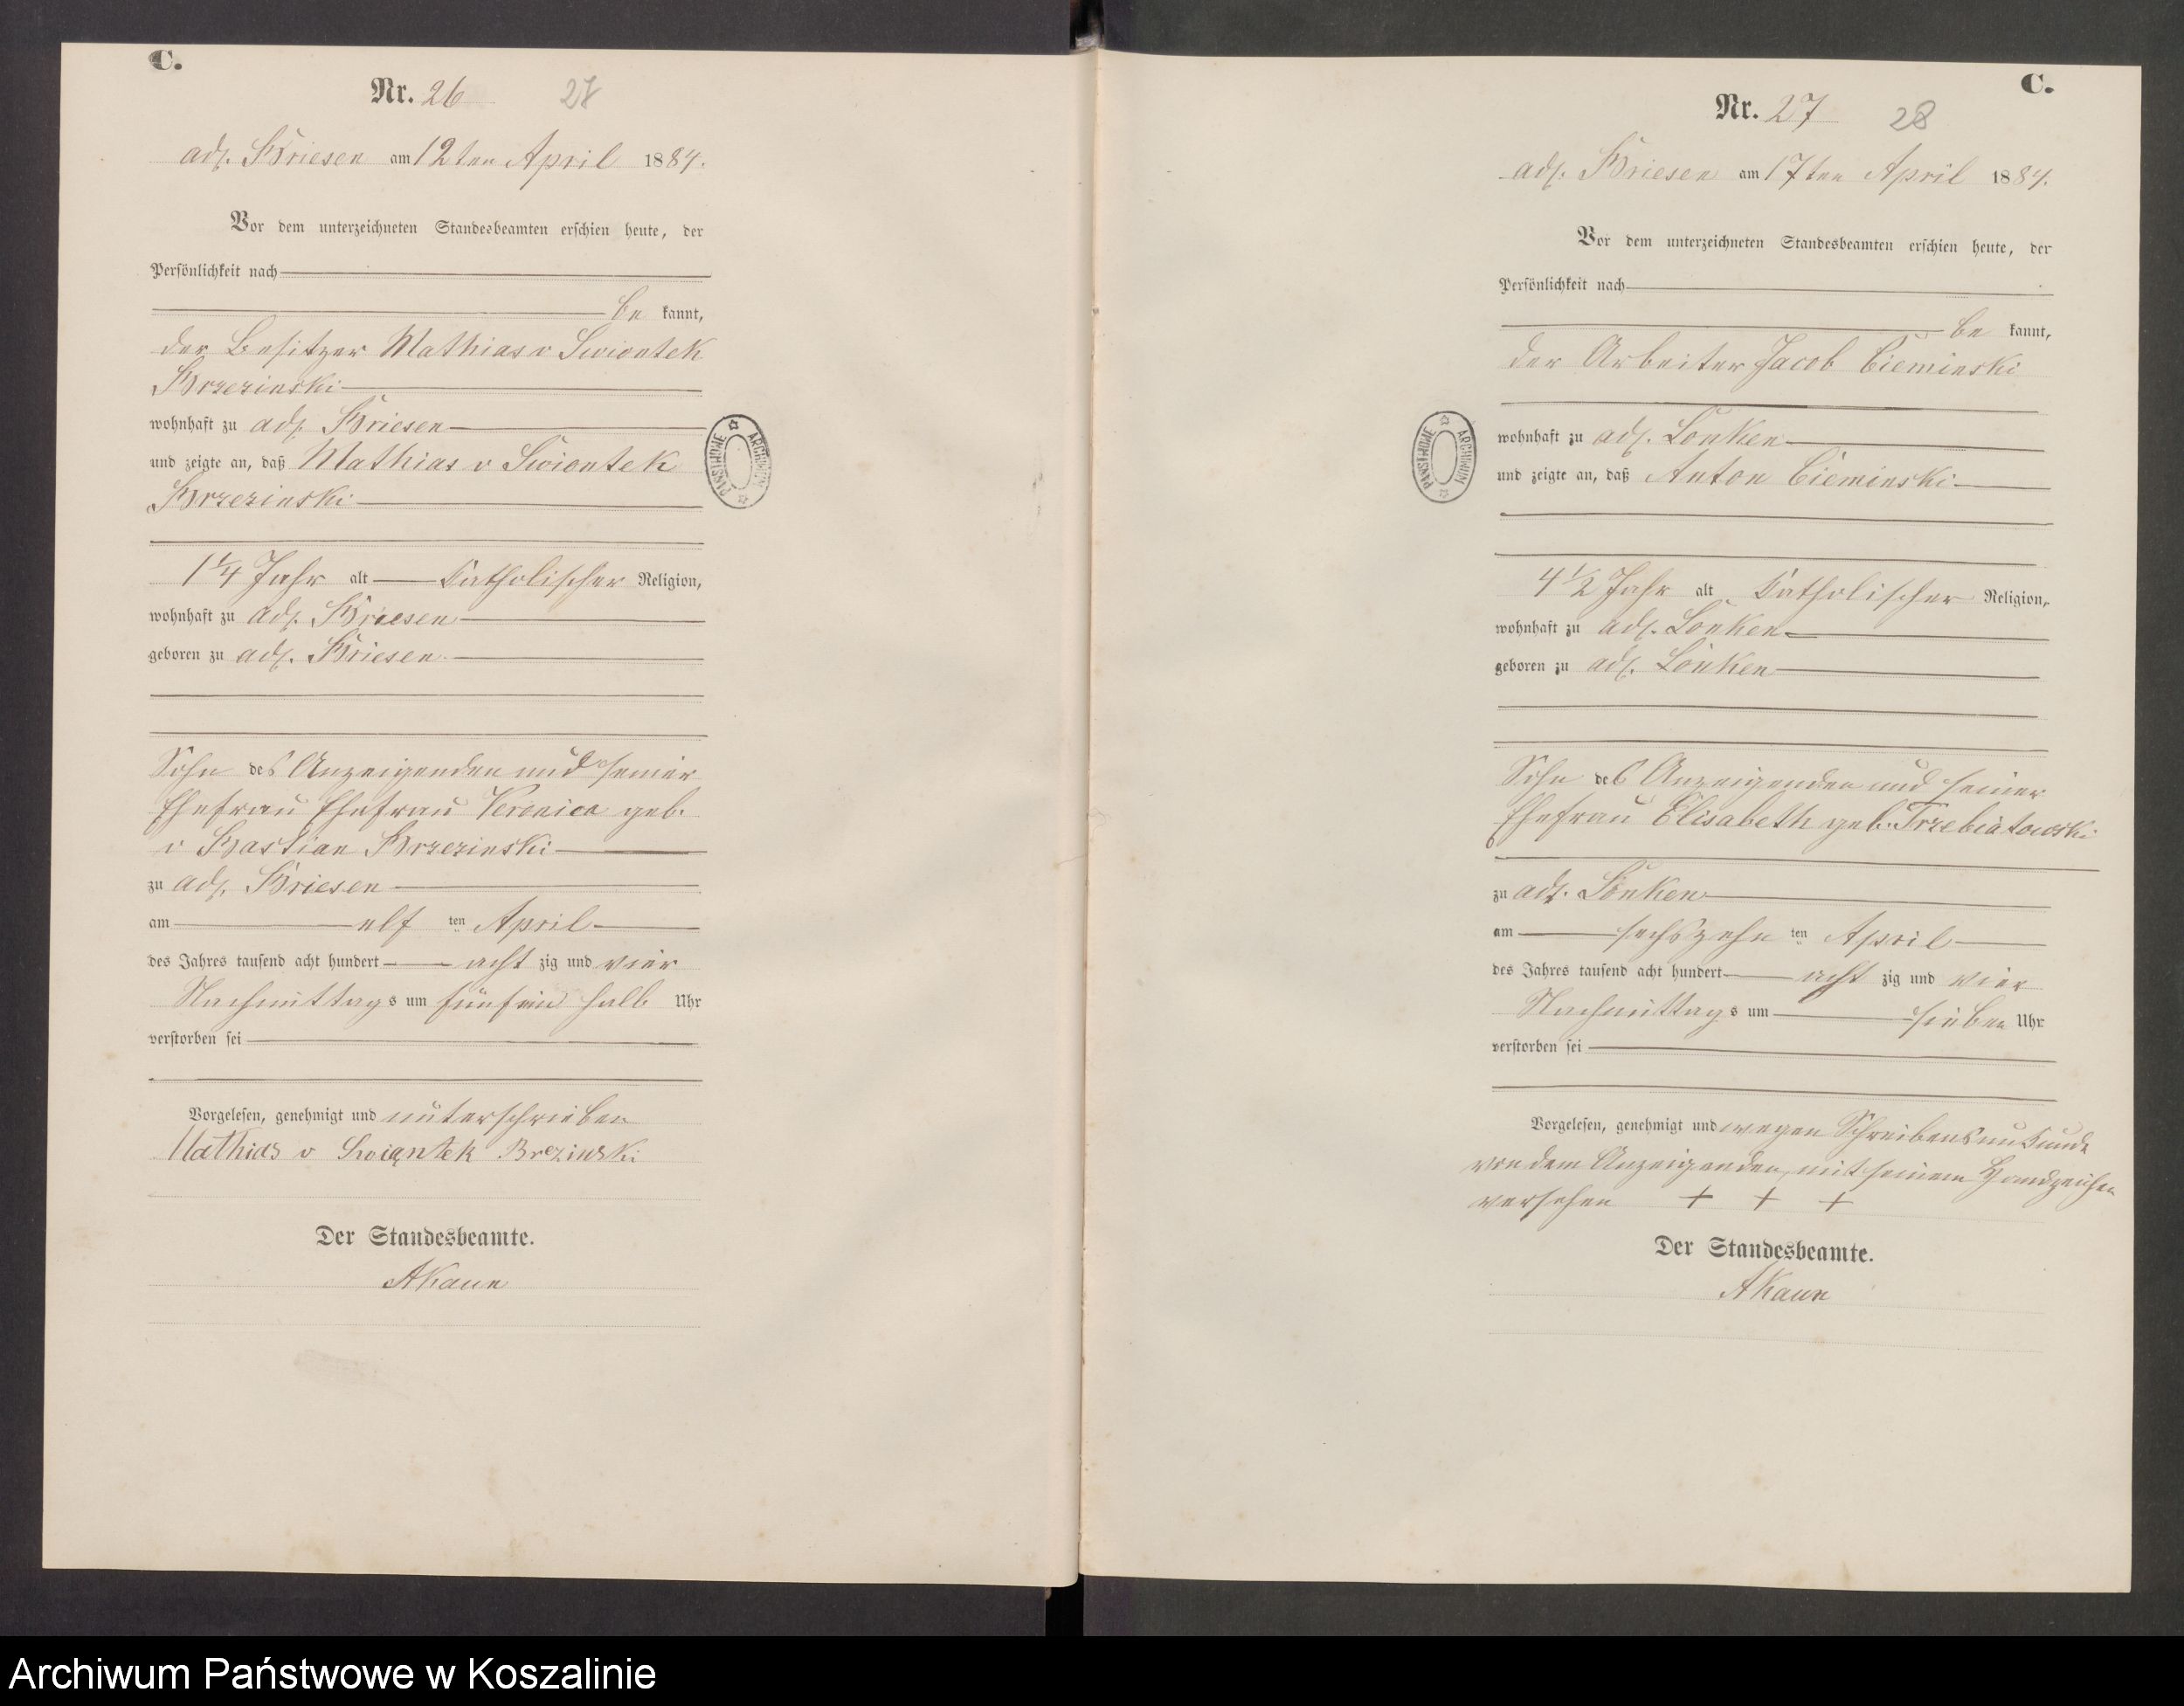 C.
Nr. 26 27
adl. Briesen am 12ten April 1884.
Vor dem unterzeichneten Standesbeamten erschien heute, der
Persönlichkeit nach
be kannt,
der Besitzer Mathias v Swiontek
Brzezinski
wohnhaft zu adl. Briesen
und zeigte an, daß Mathias v Swiontek
Brzezinski
1 1/4 Jahr alt katholischer Religion,
wohnhaft zu adl. Briesen
geboren zu adl. Briesen
Sohn des Anzeigenden und seiner
Ehefrau Ehefrau Veronica geb.
v Bastian Brzezinski
zu adl. Briesen
am elf ten April
des Jahres tausend acht hundert acht zig und vier
Nachmittags um fünf ein halb Uhr
verstorben sei
Vorgelesen, genehmigt und unterschrieben
Mathias v Swiąntek Brezinski
Der Standesbeamte.
AKaun
PAŃSTWOWE ARCHIWUM
C.
Nr. 27 28
adl. Briesen am 17ten April 1884.
Vor dem unterzeichneten Standesbeamten erschien heute, der
Persönlichkeit nach
be kannt,
der Arbeiter Jacob Cieminski
wohnhaft zu adl. Lonken
und zeigte an, daß Anton Cieminski
4 1/2 Jahr alt katholischer Religion,
wohnhaft zu adl. Lonken
geboren zu adl. Lonken
Sohn des Anzeigenden und seiner
Ehefrau Elisabeth geb. Trzebiatowski
zu adl. Lonken
am sechszehn ten April
des Jahres tausend acht hundert acht zig und vier
Nachmittags um sieben Uhr
verstorben sei
Vorgelesen, genehmigt und wegen Schreibensunkunde
von dem Anzeigenden mit seinem Handzeichen
versehen + + +
Der Standesbeamte.
AKaun
PAŃSTWOWE ARCHIWUM
Archiwum Państwowe w Koszalinie